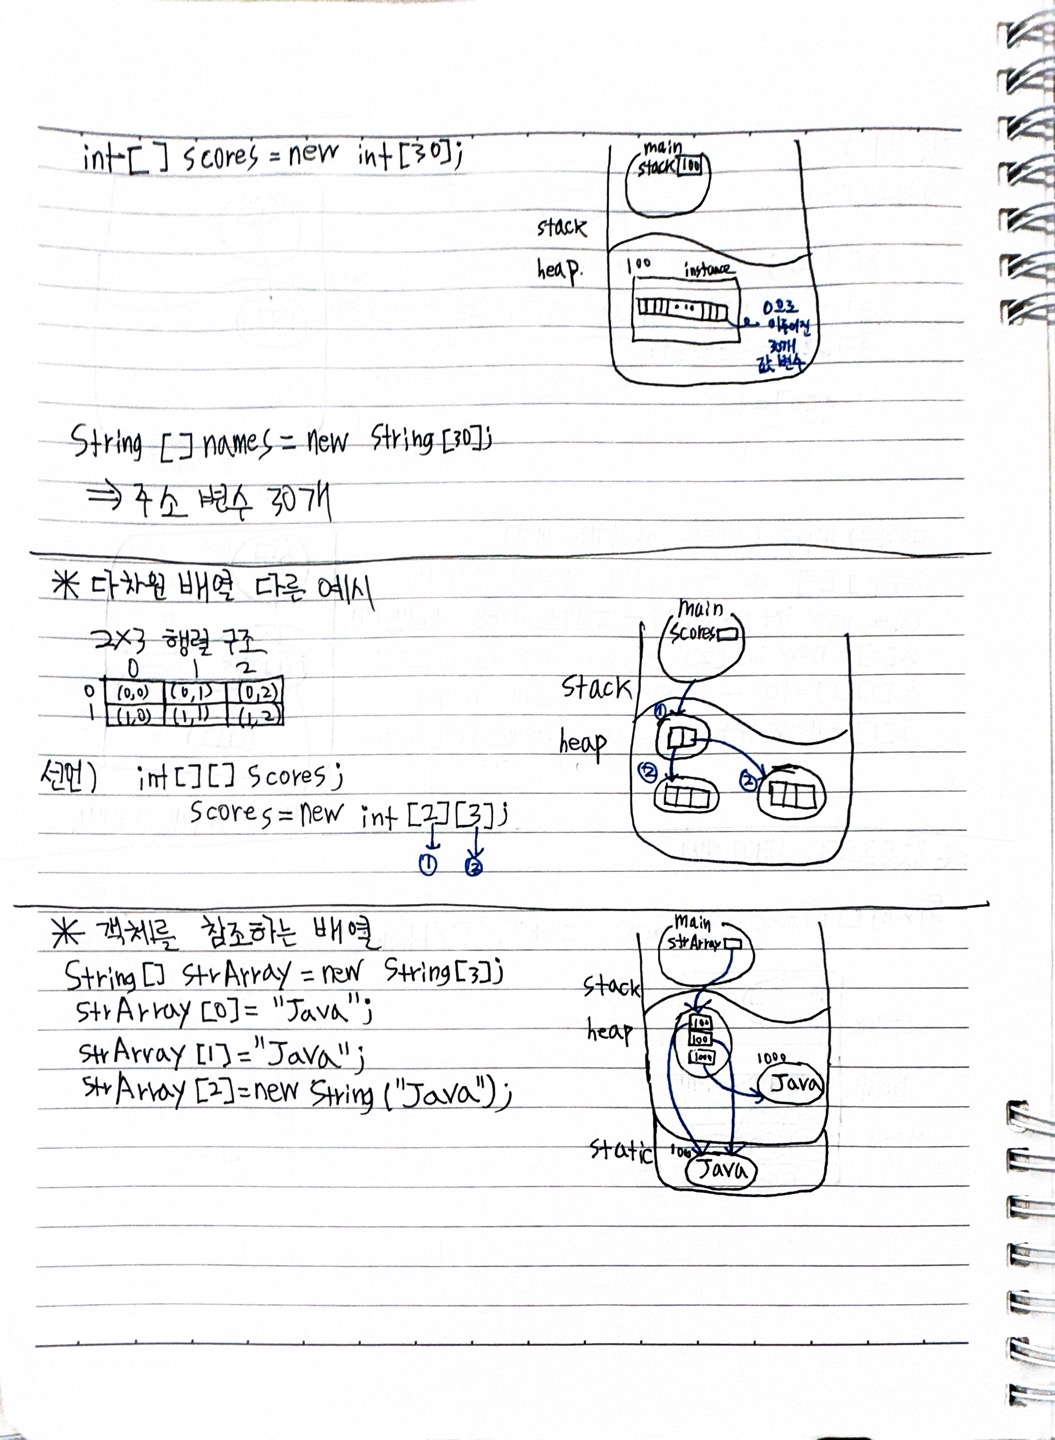 int[] scores = new int[30];
main
stack 100
stack
heap.
100 instance
0으로
이루어진
30개
값 변수
String [] names = new String[30];
⇒ 주소 변수 30개
* 다차원 배열 다른 예시
2×3 행렬 구조
0 1 2
0 (0,0) (0,1) (0,2)
1 (1,0) (1,1) (1,2)
선언) int[][] scores;
scores = new int [2][3];
① ②
main
scores
stack
heap
①
② ②
* 객체를 참조하는 배열
String[] strArray = new String[3];
strArray [0] = "Java";
strArray [1] = "Java";
strArray [2] = new String ("Java");
main
strArray
stack
heap
100
100
1000
1000
Java
static 100
Java